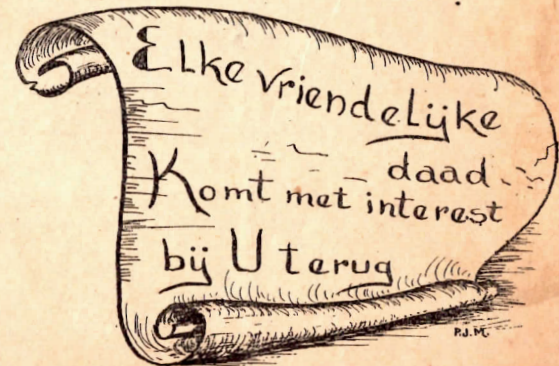 Elke vriendelijke
daad
Komt met interest
bij U terug
P.J.M.